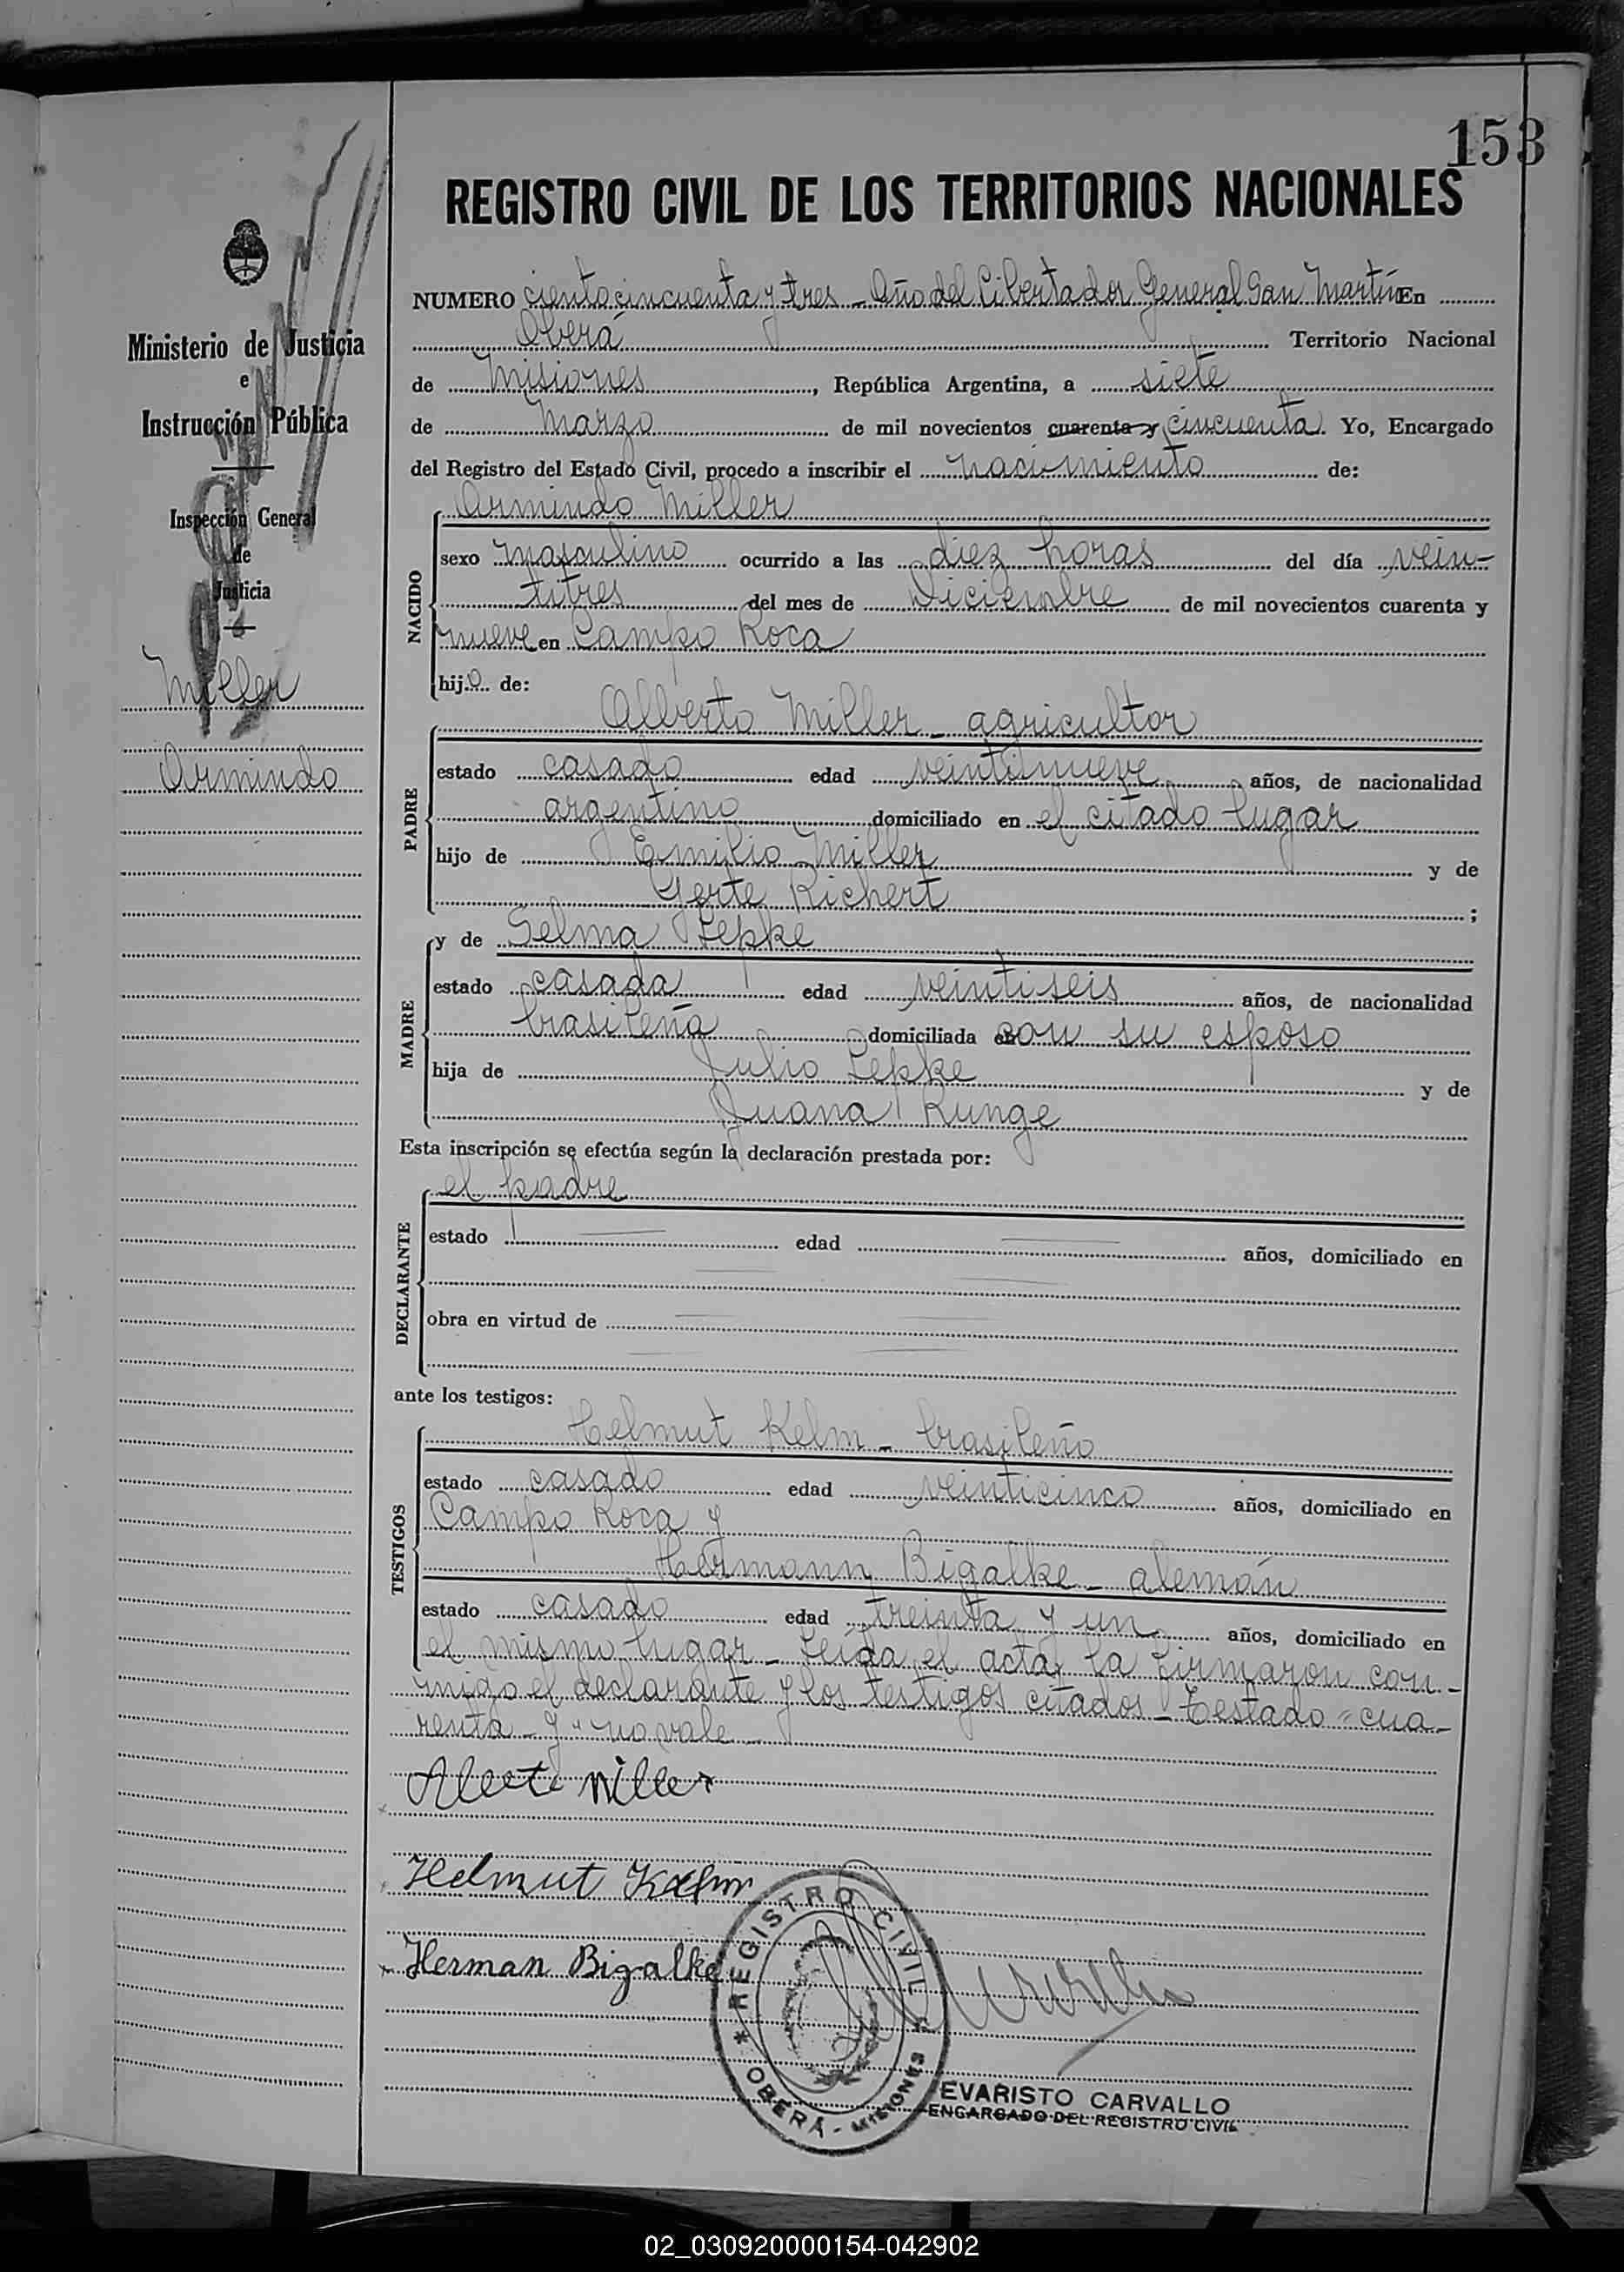 153
REGISTRO CIVIL DE LOS TERRITORIOS NACIONALES
Ministerio de Justicia
e
Instrucción Pública
Inspección General
de
Justicia
Miller
Armindo
NUMERO ciento cincuenta y tres - Año del Libertador General San Martín En
Oberá Territorio Nacional
de Misiones, República Argentina, a siete
de Marzo de mil novecientos cuarenta y cincuenta. Yo, Encargado
del Registro del Estado Civil, procedo a inscribir el nacimiento de:
NACIDO
Armindo Miller
sexo masculino ocurrido a las diez horas del día vein-
titres del mes de Diciembre de mil novecientos cuarenta y
nueve en Campo Roca
hijo de:
PADRE
Alberto Miller - agricultor
estado casado edad veintinueve años, de nacionalidad
argentino domiciliado en el citado lugar
hijo de Emilio Miller y de
Gerte Richert ;
MADRE
y de Selma Lepke
estado casada edad veintiseis años, de nacionalidad
brasileña domiciliada en con su esposo
hija de Julio Lepke y de
Juana Runge
Esta inscripción se efectúa según la declaración prestada por:
DECLARANTE
el padre
estado edad años, domiciliado en
obra en virtud de
ante los testigos:
TESTIGOS
Helmut Kelm - brasileño
estado casado edad veinticinco años, domiciliado en
Campo Roca y
Hermann Bigalke - alemán
estado casado edad treinta y un años, domiciliado en
el mismo lugar - Leída el acta, la firmaron con-
migo el declarante y los testigos citados - Testado "cua-
renta - y" no vale -
Helmut Kelm
Herman Bigalke
REGISTRO CIVIL
* OBERÁ - MISIONES *
EVARISTO CARVALLO
ENCARGADO DEL REGISTRO CIVIL
02_030920000154-042902